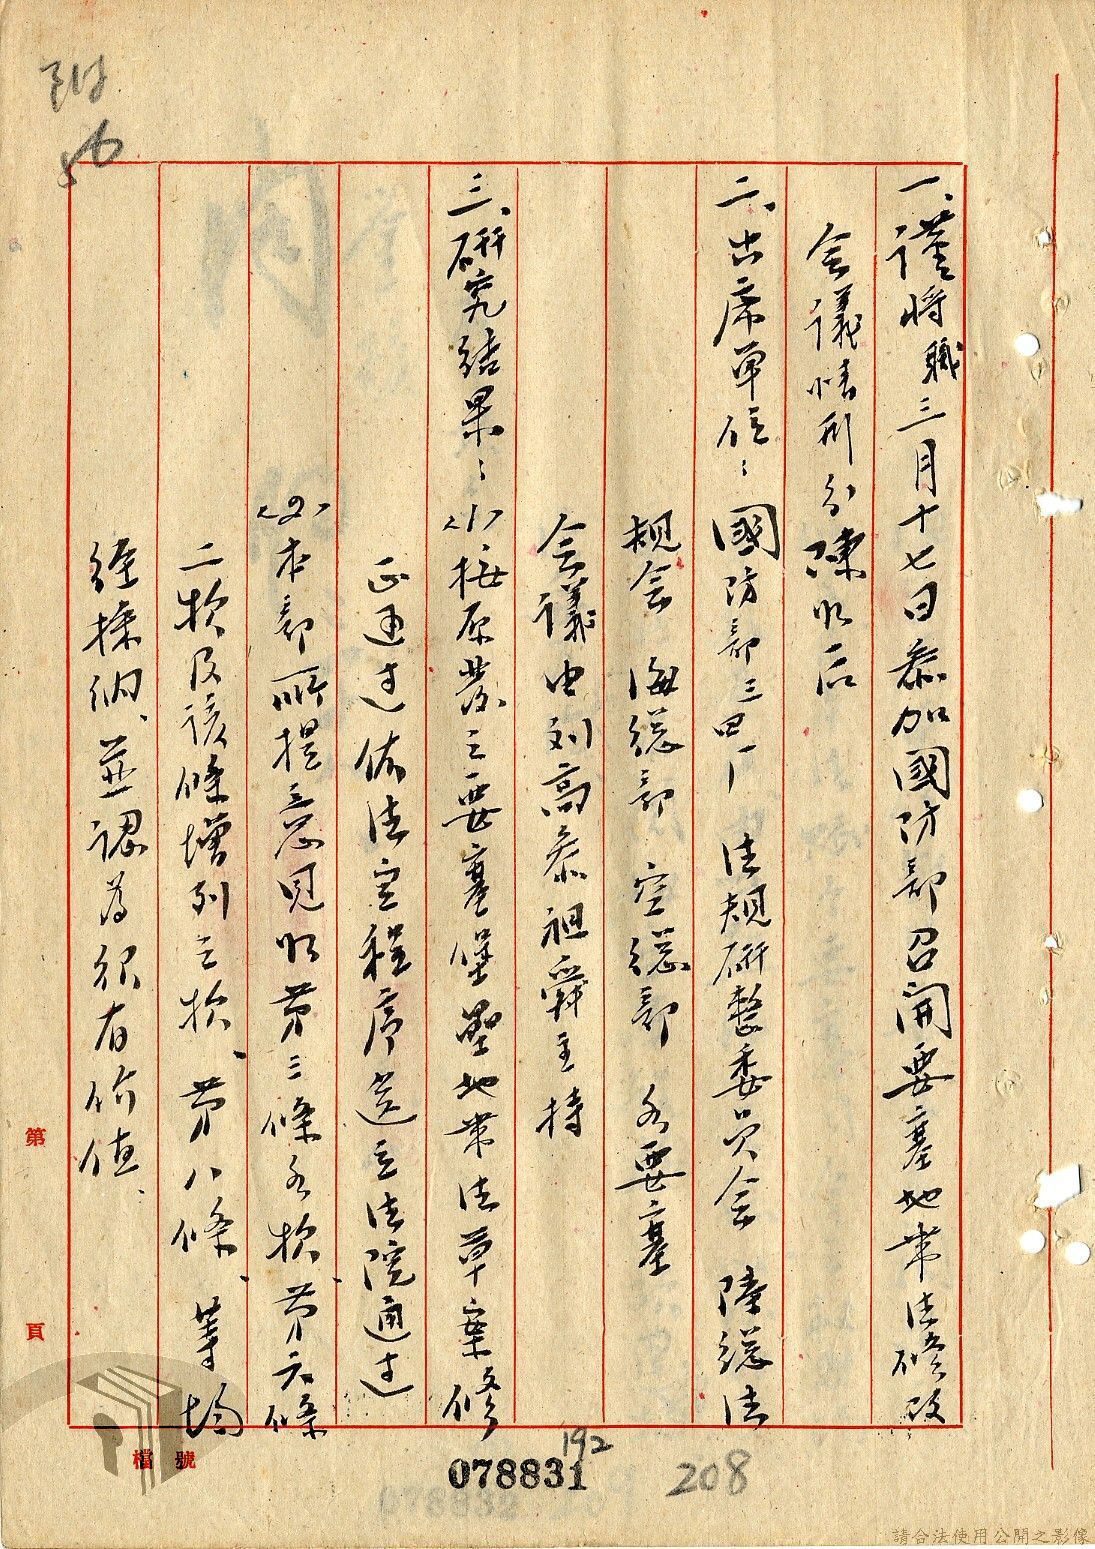 附
56
一、謹將職三月十七日叅加國防部召開要塞地帶法修改
会議情形分陳如后
二、出席單位：國防部三、四厂 法規研整委员会 陸総法
規会 海総部 空総部 各要塞
会議由刘高叅祖舜主持
三、研究结果：〈1〉按原发之要塞堡壘地帶法草案修
正通过依法定程序送立法院通过
〈2〉本部所提意见如第三條各款、第六條
二款及該條增列之款、第八條、等均
経採納、並認為很有价值、
第 頁
檔 號
192
078831
208
請合法使用公開之影像